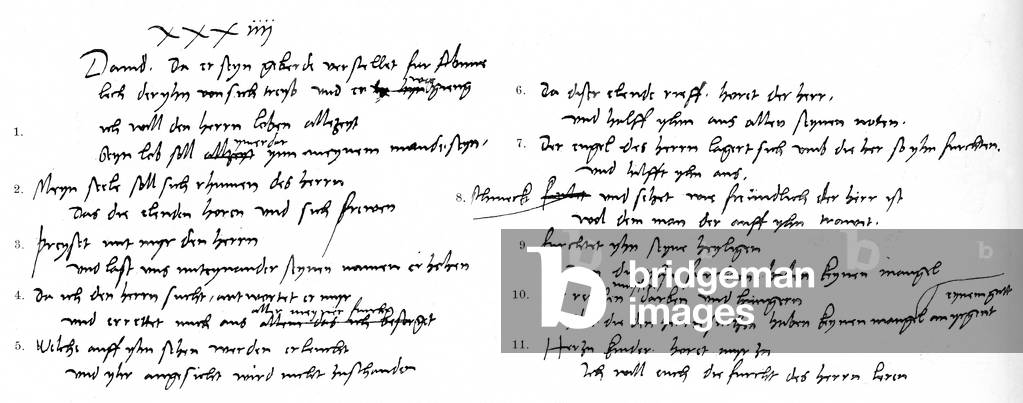 XXXiiii
David. da er seyn geberde verstellet fur Abime
lech der yhn von sich treyb und er weg gieng
1. ich will den herrn loben allezeyt
Seyn lob soll ymerdar ynn meynem munde seyn.
2. Meyn seele soll sich rhumen des herrn
Das die elenden horen und sich frewen
3. Preyset mit myr den herrn
und last uns miteynander seynen namen erhohen
4. Da ich den herrn sucht, antwortet er myr
und errettet mich aus aller meyner furcht
5. Welche auff yhn sehen werden erleucht
und yhr angesicht wird nicht zuschanden
6. Da diser elende rieff. horet der herr,
und halff yhm aus allen seynen noten.
7. Der engel des herrn lagert sich umb die her so yhn furchten.
und hilfft yhn aus.
8. Schmeck und sehet wie freundlich der herr ist
wol dem man der auff yhn trawet.
9. furchtet yhn seyne heyligen
haben keynen mangel
10. darben und hungern
die den haben keynen mangel an yrgent
eynem gutt
11. Her zu kinder. horet myr zu
Ich will euch die furcht des herrn leren
b bridgeman
images
b
b